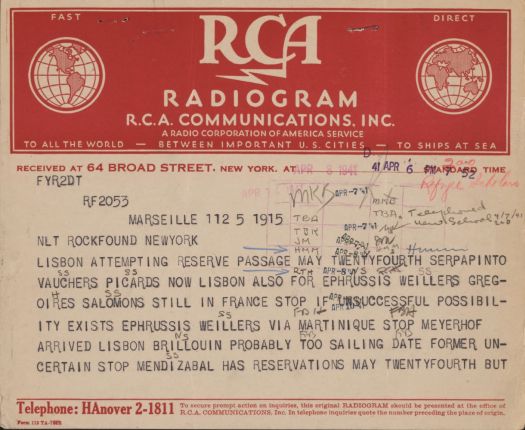 FAST
DIRECT
RCA
RADIOGRAM
R.C.A. COMMUNICATIONS, INC.
A RADIO CORPORATION OF AMERICA SERVICE
TO ALL THE WORLD — BETWEEN IMPORTANT U.S. CITIES — TO SHIPS AT SEA
RECEIVED AT 64 BROAD STREET, NEW YORK, AT STANDARD TIME
APR 8 1941
41 APR 6 PM 7 52
200
Refugee Scholars
FYR2DT
RF2053
MKB
APR-7'41
TBA
TBA. Telephoned
New School 4/7/41
MARSEILLE 112 5 1915
NLT ROCKFOUND NEWYORK
JM
HMM
LISBON ATTEMPTING RESERVE PASSAGE MAY TWENTYFOURTH SERPAPINTO
SS SS RTH SS
VAUCHERS PICARDS NOW LISBON ALSO FOR EPHRUSSIS WEILLERS GREG-
H SS
OIRES SALOMONS STILL IN FRANCE STOP IF UNSUCCESSFUL POSSIBIL-
SS
ITY EXISTS EPHRUSSIS WEILLERS VIA MARTINIQUE STOP MEYERHOF
NS
ARRIVED LISBON BRILLOUIN PROBABLY TOO SAILING DATE FORMER UN-
SS
CERTAIN STOP MENDIZABAL HAS RESERVATIONS MAY TWENTYFOURTH BUT
Telephone: HAnover 2-1811
To secure prompt action on inquiries, this original RADIOGRAM should be presented at the office of
R.C.A. COMMUNICATIONS, Inc. In telephone inquiries quote the number preceding the place of origin.